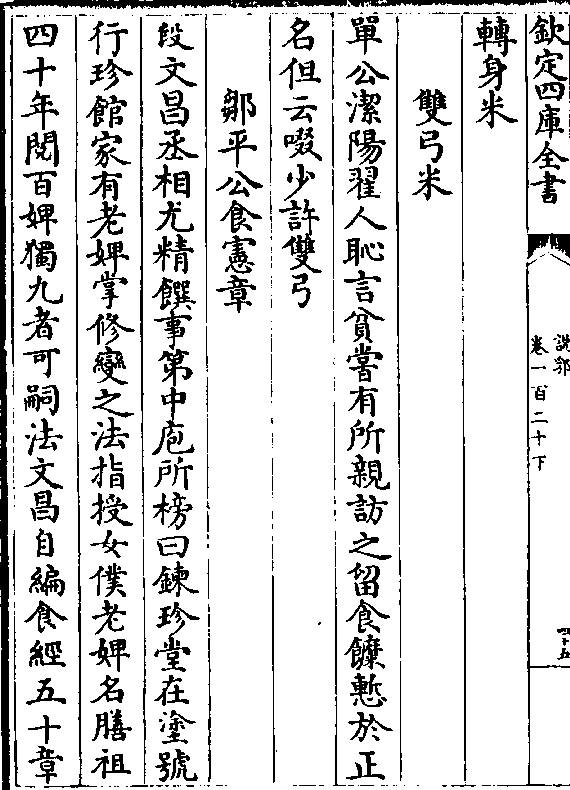 欽定四庫全書
說郛
卷一百二十下
四十五
轉身米
雙弓米
單公潔陽翟人恥言貧嘗有所親訪之留食糜慙於正
名但云啜少許雙弓
鄒平公食憲章
段文昌丞相尤精饌事第中庖所榜曰鍊珍堂在塗號
行珍館家有老婢掌修變之法指授女僕老婢名膳祖
四十年閱百婢獨九者可嗣法文昌自編食經五十章